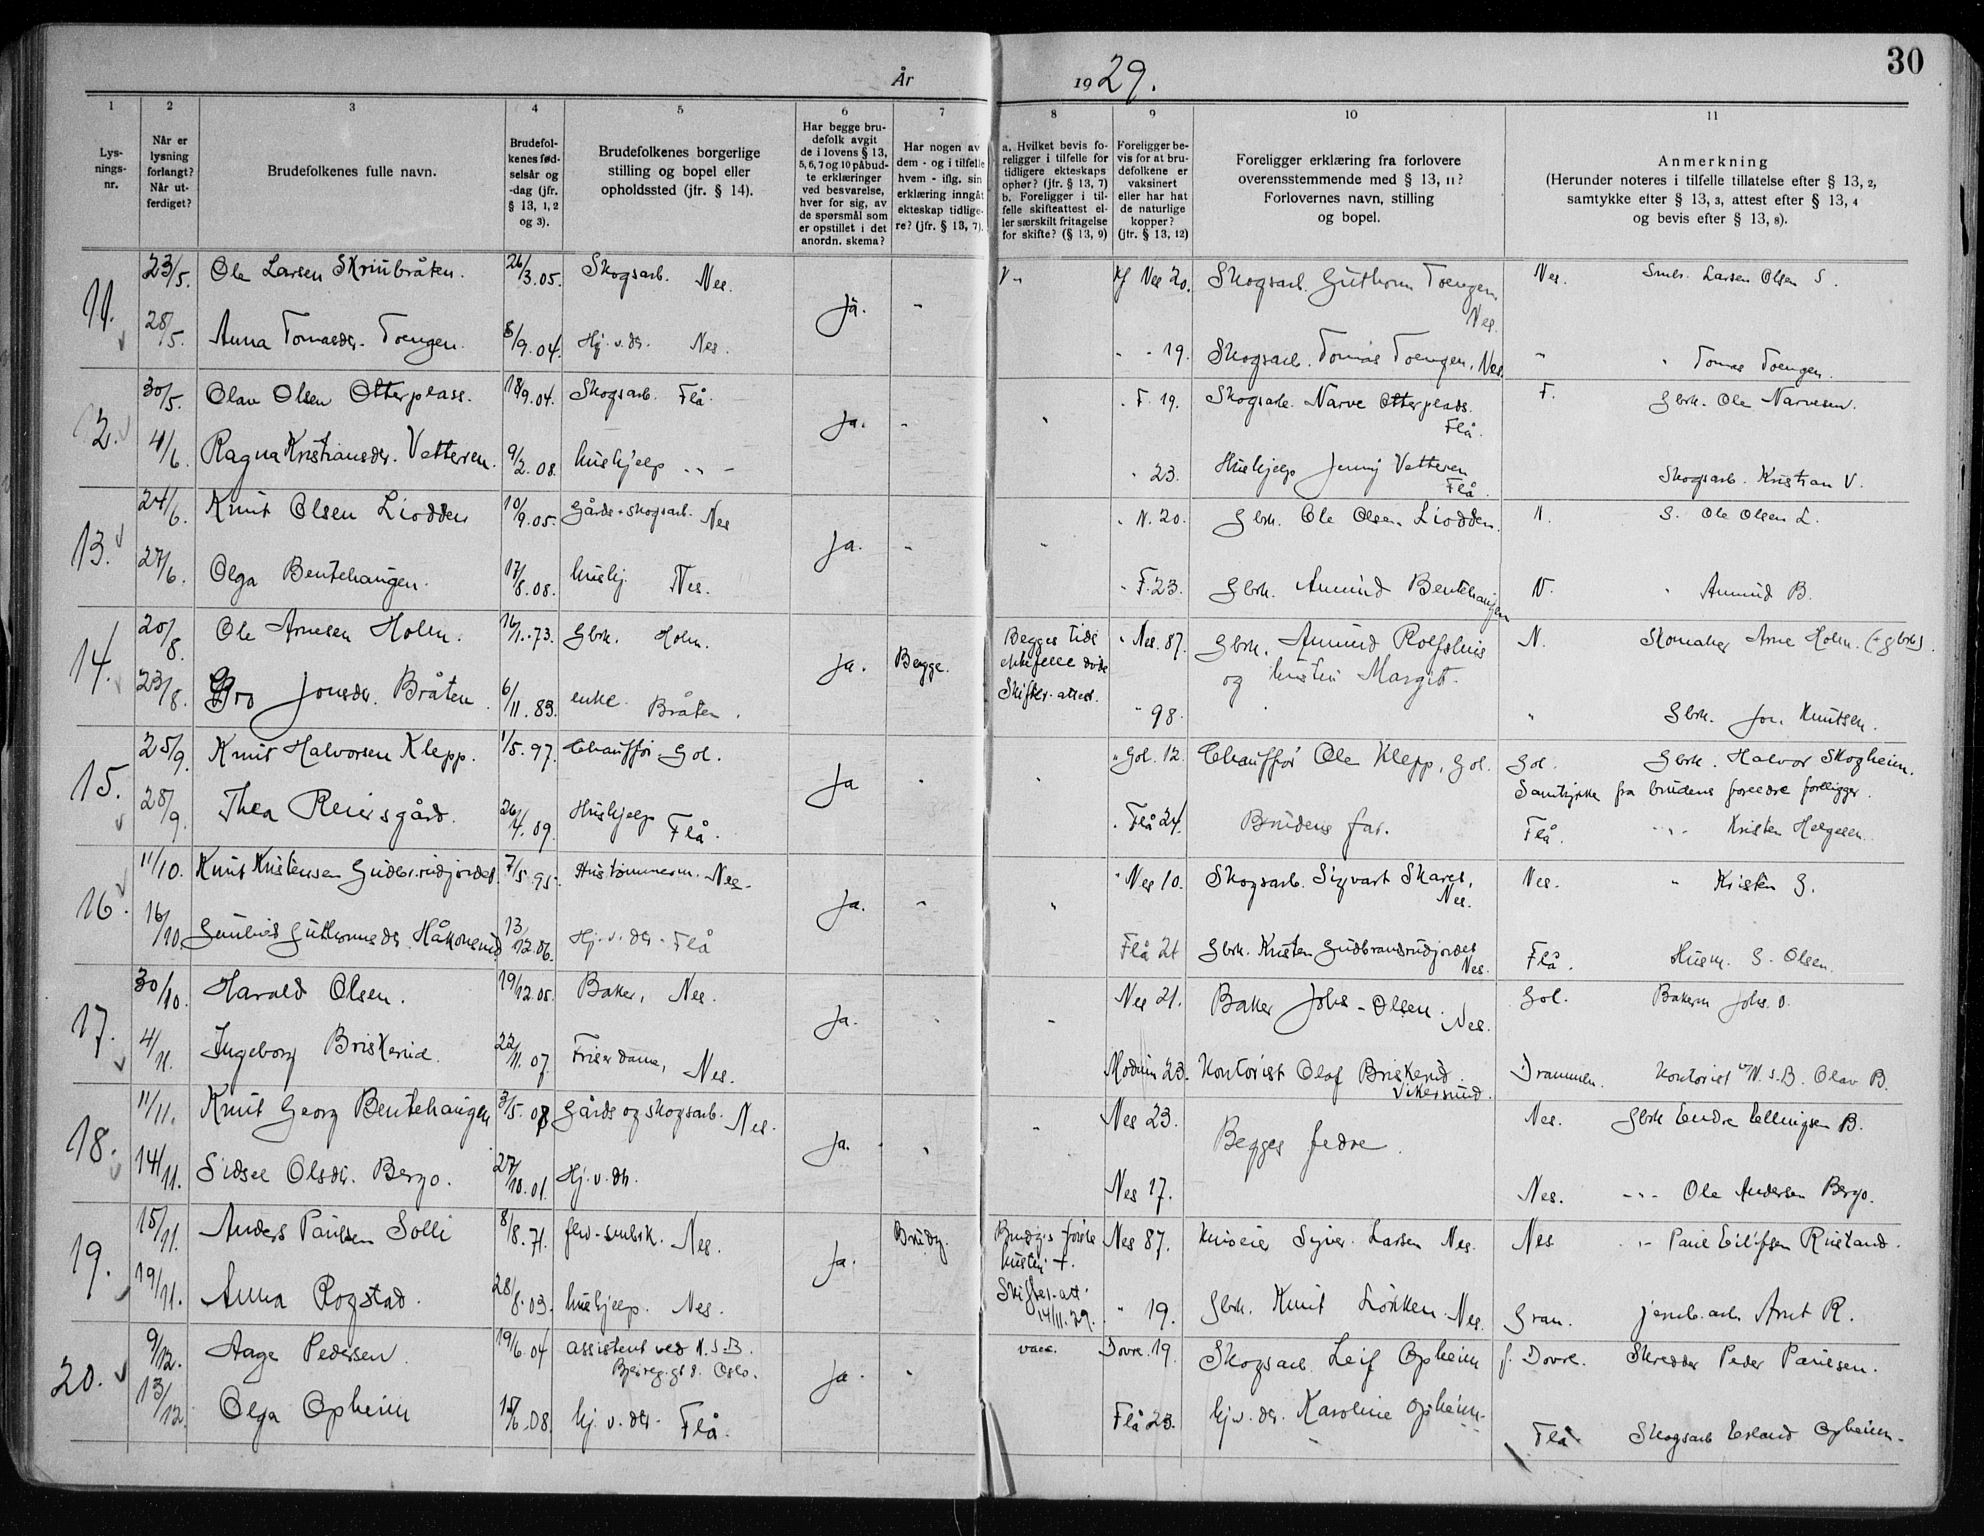 30
År 1929.
1 2 3 4 5 6 7 8 9 10 11
Lys-
nings-
nr.
Når er
lysning
forlangt?
Når ut-
ferdiget?
Brudefolkenes fulle navn.
Brudefol-
kenes fød-
selsår og
-dag (jfr.
§ 13, 1, 2
og 3).
Brudefolkenes borgerlige
stilling og bopel eller
opholdssted (jfr. § 14).
Har begge bru-
defolk avgit
de i lovens § 13,
5, 6, 7 og 10 påbud-
te erklæringer
ved besvarelse,
hver for sig, av
de spørsmål som
er opstillet i det
anordn. skema?
Har nogen av
dem - og i tilfelle
hvem - iflg. sin
erklæring inngåt
ekteskap tidlige-
re? (jfr. § 13, 7).
a. Hvilket bevis fo-
religger i tilfelle for
tidligere ekteskaps
ophør? (jfr. § 13, 7)
b. Foreligger i til-
felle skifteattest el-
ler særskilt fritagelse
for skifte? (§ 13, 9)
Foreligger be-
vis for at bru-
defolkene er
vaksinert
eller har hat
de naturlige
kopper?
(jfr. § 13, 12)
Foreligger erklæring fra forlovere
overensstemmende med § 13, 11?
Forlovernes navn, stilling
og bopel.
Anmerkning
(Herunder noteres i tilfelle tillatelse efter § 13, 2,
samtykke efter § 13, 3, attest efter § 13, 4
og bevis efter § 13, 8).
11. 23/5. Ole Larsen Skrinbråten. 26/3.05. Skogsarb. Nes. Ja. - Nes 20. Skogsarb. Guttorm Toengen. Nes. Nes. Larsen Olsen S.
28/5. Anna Tomasdr. Toengen. 8/9.04. Hj. v. dr. Nes. - - 19. Skogsarb. Tomas Toengen, Nes. " " Tomas Toengen.
12. 30/5. Olav Olsen Otterplass. 18/9.04. Skogsarb. Flå. Ja. - " F. 19. Skogsarb. Narve Otterplads. Flå. F. Gbrk. Ole Narvesen.
4/6. Ragna Kristiansdr. Vetteren. 9/2.08. hushjelp " - " 23. Hushjelp Jenny Vetteren Flå. Skogsarb. Kristian V.
13. 24/6. Knut Olsen Liodden 10/9.05. Gårds- skogsarb. Nes Ja. - " N. 20. Gbrk. Ole Olsen Liodden. N. G. Ole Olsen L.
27/6. Olga Bentehaugen. 17/8.08. hushj. Nes. " F. 23. Gbrk. Anund Bentehaugen N. " Anund B.
14. 20/8. Ole Arnesen Holm. 16/1.-73. Gbrk. Holm. Ja. Begge. Begges tidl. ektefelle døde Skifter. attest. " Nes. 87. Gbrk. Anund Rolfshus og hustru Margit. N. Skomaker Arne Holm. (+ gbrk).
23/8. Gro Jonsdr. Bråten 6/11.83. enke. Bråten. " 98. " Gbrk. Jon Knutsen.
15. 25/9. Knut Halvorsen Klepp. 1/5.97. Chauffør. Gol. Ja " " " Gol. 12. Chauffør Ole Klepp, Gol. Gol. Gbrk. Halvor Skogheim.
Samtykke fra brudens foreldre foreligger.
28/9. Thea Reiersgård. 26/4.09. Hushjelp Flå. " Flå 24. Brudens far. Flå. " " Kristen Helgesen.
16. 11/10. Knut Kristensen Gudbr.rudjordet. 7/5.95. Hustømmerm. Nes. Ja. - " " Nes 10. Skogsarb. Sigvart Skares, Nes. Nes. " Kristen G.
16/10. Gunhild Guttormsdr. Håkonsrud. 13/12.06. Hj. v. dr. Flå Flå 21 Gbrk. Kristen Gudbrandsrudjordet Nes. Flå. Husm. G. Olsen.
17. 30/10. Harald Olsen. 19/12.05. Baker, Nes. Ja. " " Nes 21. Baker Johs. Olsen. Nes. Gol. Bakerm Johs. O.
4/11. Ingeborg Briskerud. 22/11.07. Friserdame, Nes. Modum 23. Kontorist Olaf Briskerud. Vikersund. Drammen. Kontorist v/N.S.B. Olav B.
18. 11/11. Knut Georg Bentehaugen 3/5.07 Gårds og skogsarb. Nes. Ja. " " Nes 23. Begges fedre. Nes. Gbrk Endre Ellingsen B.
14/11. Sidsel Olsdr. Bergo. 27/10.01. Hj. v. dr. Nes 17. Nes. " " Ole Andersen Bergo.
19. 15/11. Anders Paulsen Solli 8/8.71. Nes. Ja. Brudg. Brudg.s første hustru +. Skifter-att. 14/11.29. Nes 87. Huseier Syver Larsen Nes. Nes " Paul Eilifsen Rustand.
19/11. Anna Rogstad. 28/8.03. hushjelp. Nes. " 19. Gbrk. Knut Løkken Nes. Gran. jernb.arb Arnt R.
20. 9/12. Aage Pedersen. 19/6.04 assistent ved N.S.B. Oslo. Ja. " vacc. Dovre. 19. Skogsarb. Leif Opheim f. Dovre. Skredder Peder Paulsen.
13/12. Olga Opheim /6.08. hj. v. dr. Flå. Flå 23. hj. v. dr. Karoline Opheim. Flå Skogsarb Erland Opheim.